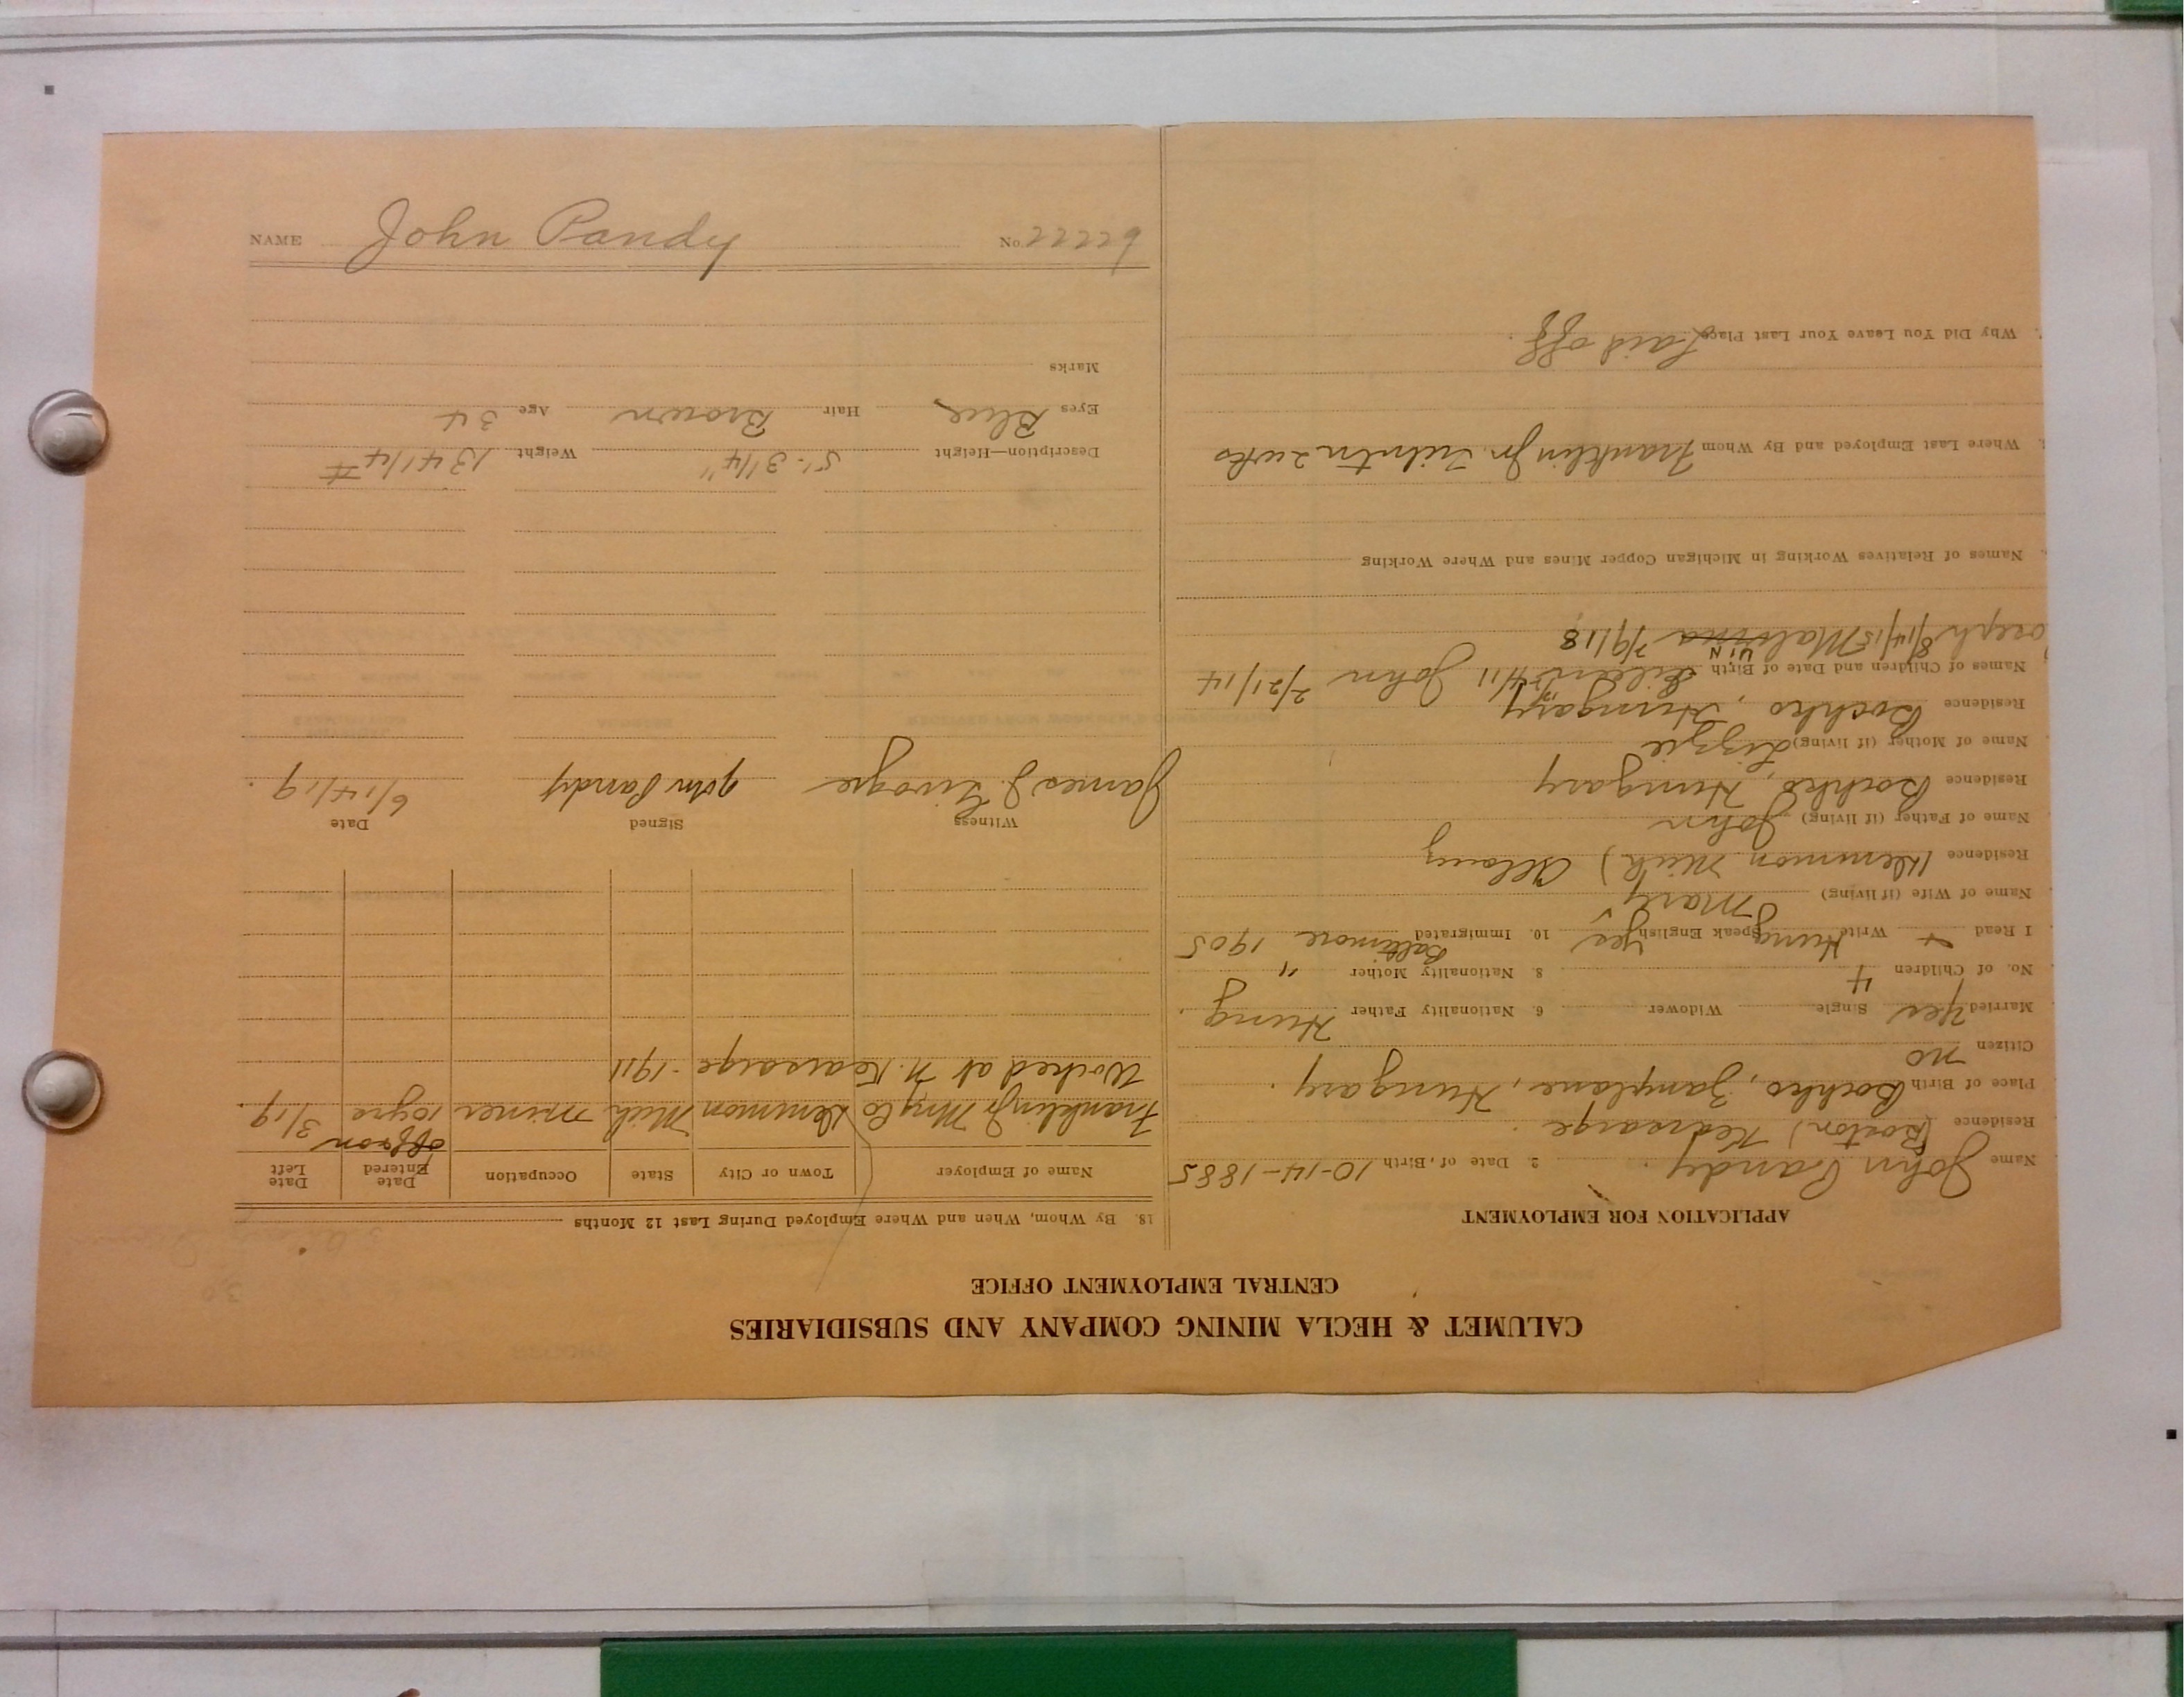 CALUMET & HECLA MINING COMPANY AND SUBSIDIARIES
CENTRAL EMPLOYMENT OFFICE
APPLICATION FOR EMPLOYMENT
Name John Pandy. 2. Date of Birth 10-14-1885
Residence (Boston) Kearsarge.
Place of Birth Bochko, Zamplane, Hungary.
Citizen no
Married Yes Single Widower 6. Nationality Father Hung.
No. of Children 4 8. Nationality Mother "
I Read + Write Hung Speak English Yes 10. Immigrated Baltimore 1905
Name of Wife (if living) Mary
Residence Demmon Mich)
Name of Father (if living) John
Residence Bochko, Hungary
Name of Mother (if living) Lizzie
Residence Bochko, Hungary
Names of Children and Date of Birth 4/11 John 2/21/14
oseph 8/14/15 7/9/18
Names of Relatives Working in Michigan Copper Mines and Where Working
Where Last Employed and By Whom Franklin Jr. 2 wks
Why Did You Leave Your Last Place Laid off.
18. By Whom, When and Where Employed During Last 12 Months
Name of Employer Town or City State Occupation Date Entered Date Left
off & on
Franklin Jr Mng Co Demmon Mich miner 10 yrs 3/19.
Worked at N. Kearsarge - 1911
Witness Signed Date
James J. John Pandy 6/14/19.
Description—Height 5'-3 1/4" Weight 134 1/4 #
Eyes Blue Hair Brown Age 34
Marks
NAME John Pandy No. 22229